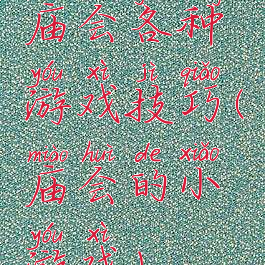 庙会各种
yóu xì jì qiǎo
游戏技巧(
miào huì de xiǎo
庙会的小
yóu xì
游戏)